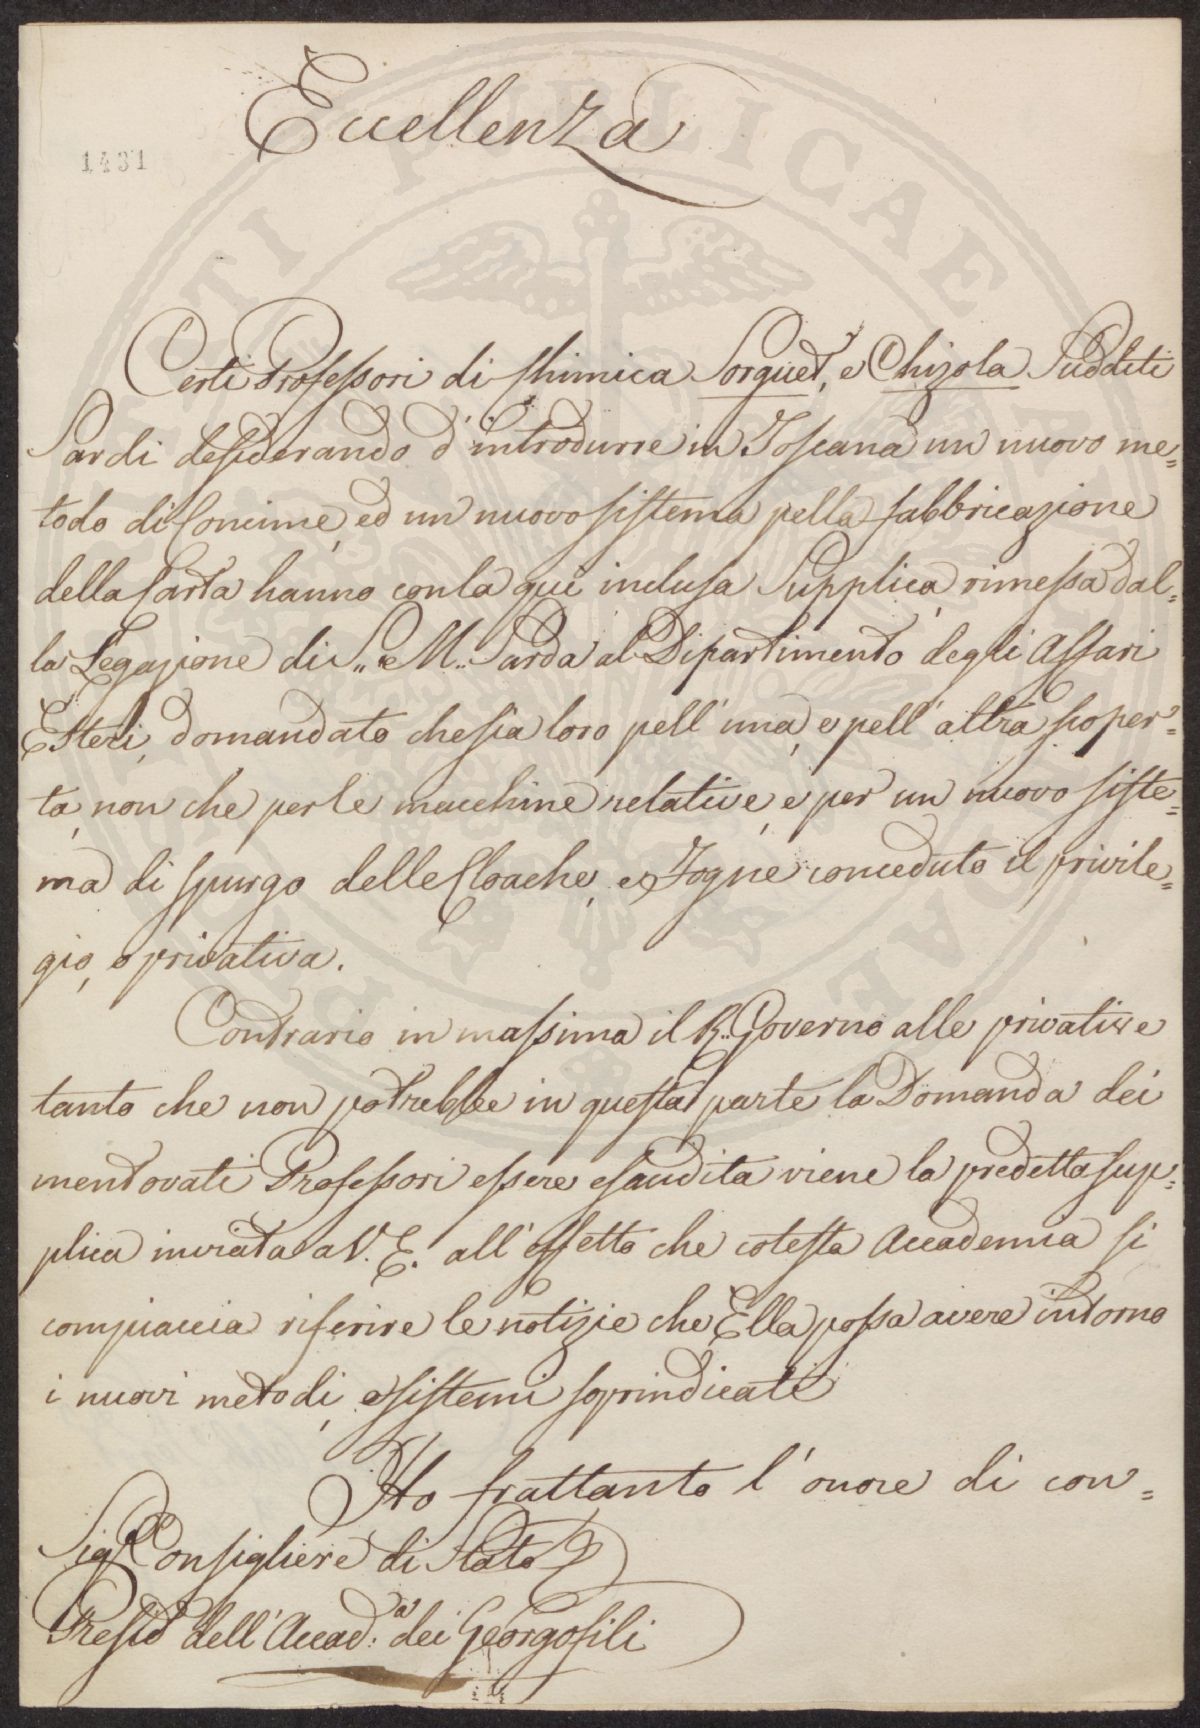 Eccellenza
1431
Certi Professori di Chimica Sorguet, e Chizola Sudditi
Sardi desiderando d'introdurre in Toscana un nuovo me=
todo di Concime, ed un nuovo sistema pella fabbricazione
della Carta hanno con la qui inclusa Supplica rimessa dal=
la Legazione di S.. M.. Sarda al Dipartimento degli Affari
Esteri, domandato che sia loro pell'una, e pell'altra scoper=
ta, non che per le macchine relative, e per un nuovo siste=
ma di spurgo delle Cloache, e Fogne conceduto il privile=
gio, o privativa.
Contrario in massima il R.. Governo alle privative
tanto che non potrebbe in questa parte la Domanda dei
mentovati Professori essere esaudita viene la predetta sup=
plica inviata a V. E. all'effetto che cotesta Accademia si
compiaccia riferire le notizie che Ella possa avere intorno
i nuovi metodi, e sistemi soprindicati
Ho frattanto l'onore di con=
Sigr. Consigliere di Stato
Presid. dell'Accad:a dei Georgofili